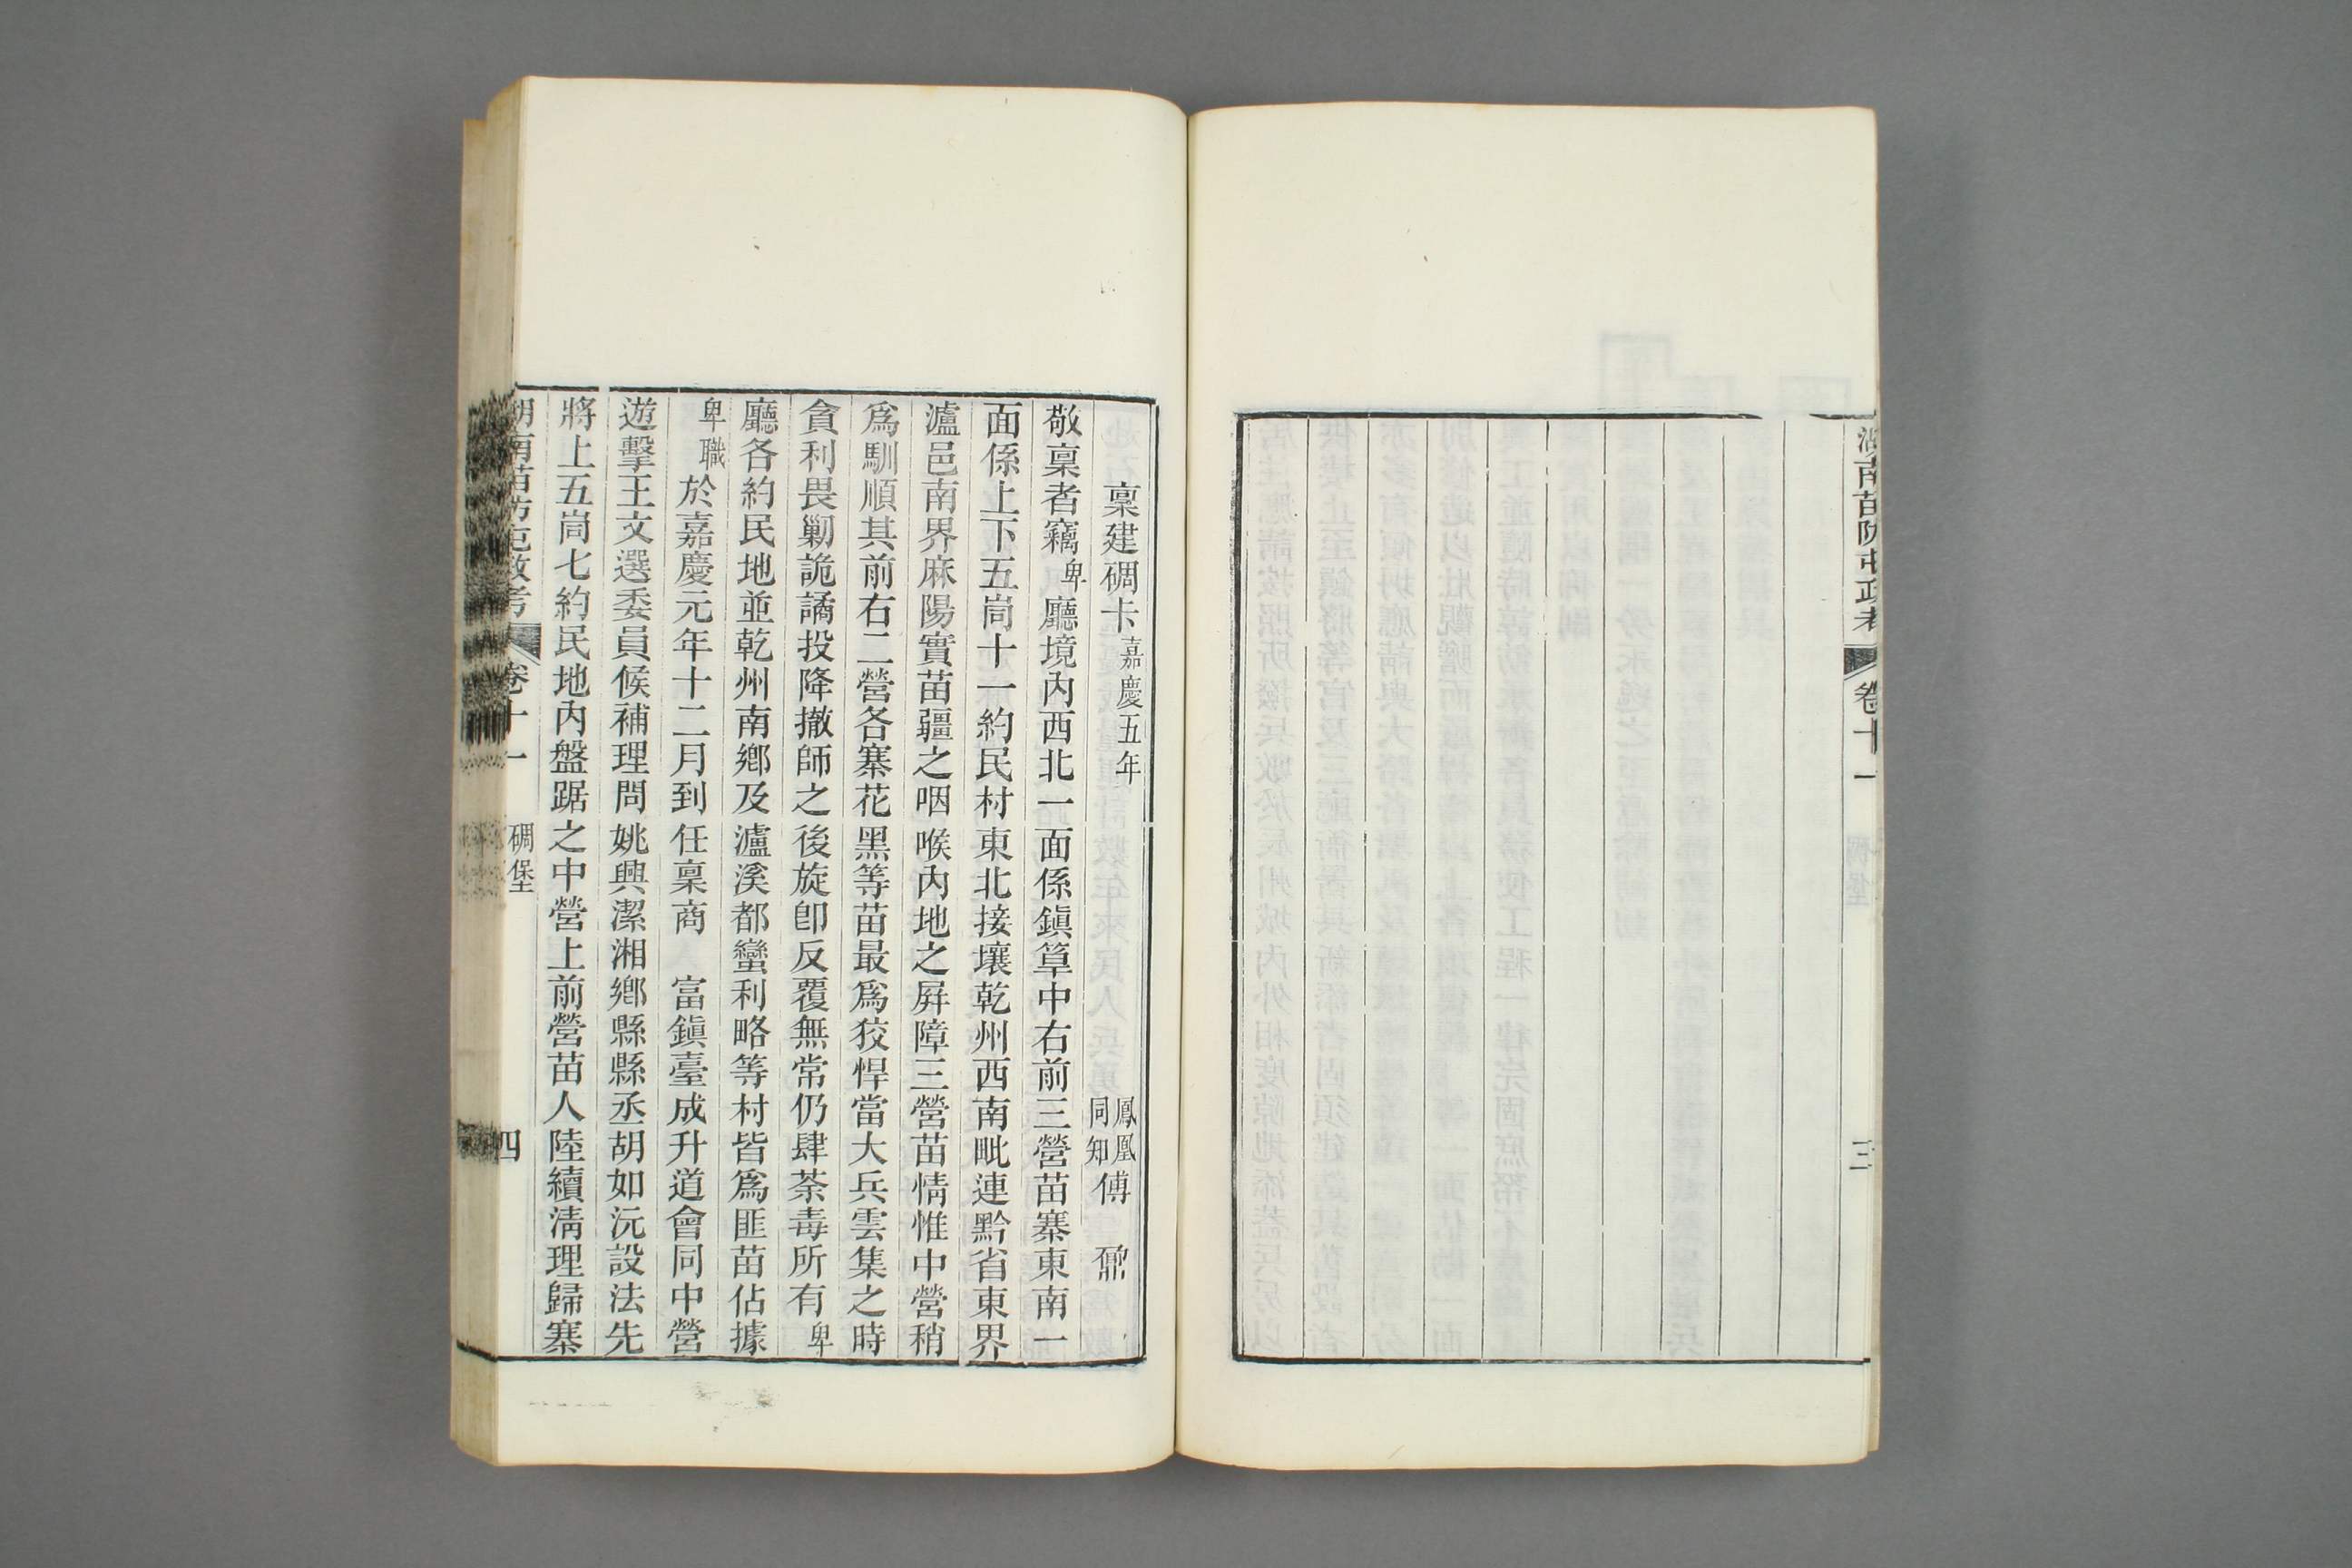 湖南苗防屯政考 卷十一 碉堡 三
稟建碉卡嘉慶五年 鳳凰同知傅鼐
敬稟者竊卑廳境內西北一面係鎭筸中右前三營苗寨東南一
面係上下五峝十一約民村東北接壤乾州西南毗連黔省東界
瀘邑南界麻陽實苗疆之咽喉內地之屛障三營苗情惟中營稍
爲馴順其前右二營各寨花黑等苗最爲狡悍當大兵雲集之時
貪利畏剿詭譎投降撤師之後旋卽反覆無常仍肆荼毒所有卑
廳各約民地並乾州南鄕及瀘溪都蠻利略等村皆爲匪苗佔據
卑職於嘉慶元年十二月到任稟商 富鎭臺成升道會同中營
遊擊王文選委員候補理問姚興潔湘鄕縣縣丞胡如沅設法先
將上五峝七約民地內盤踞之中營上前營苗人陸續淸理歸寨
湖南苗防屯政考 卷十一 碉堡 四